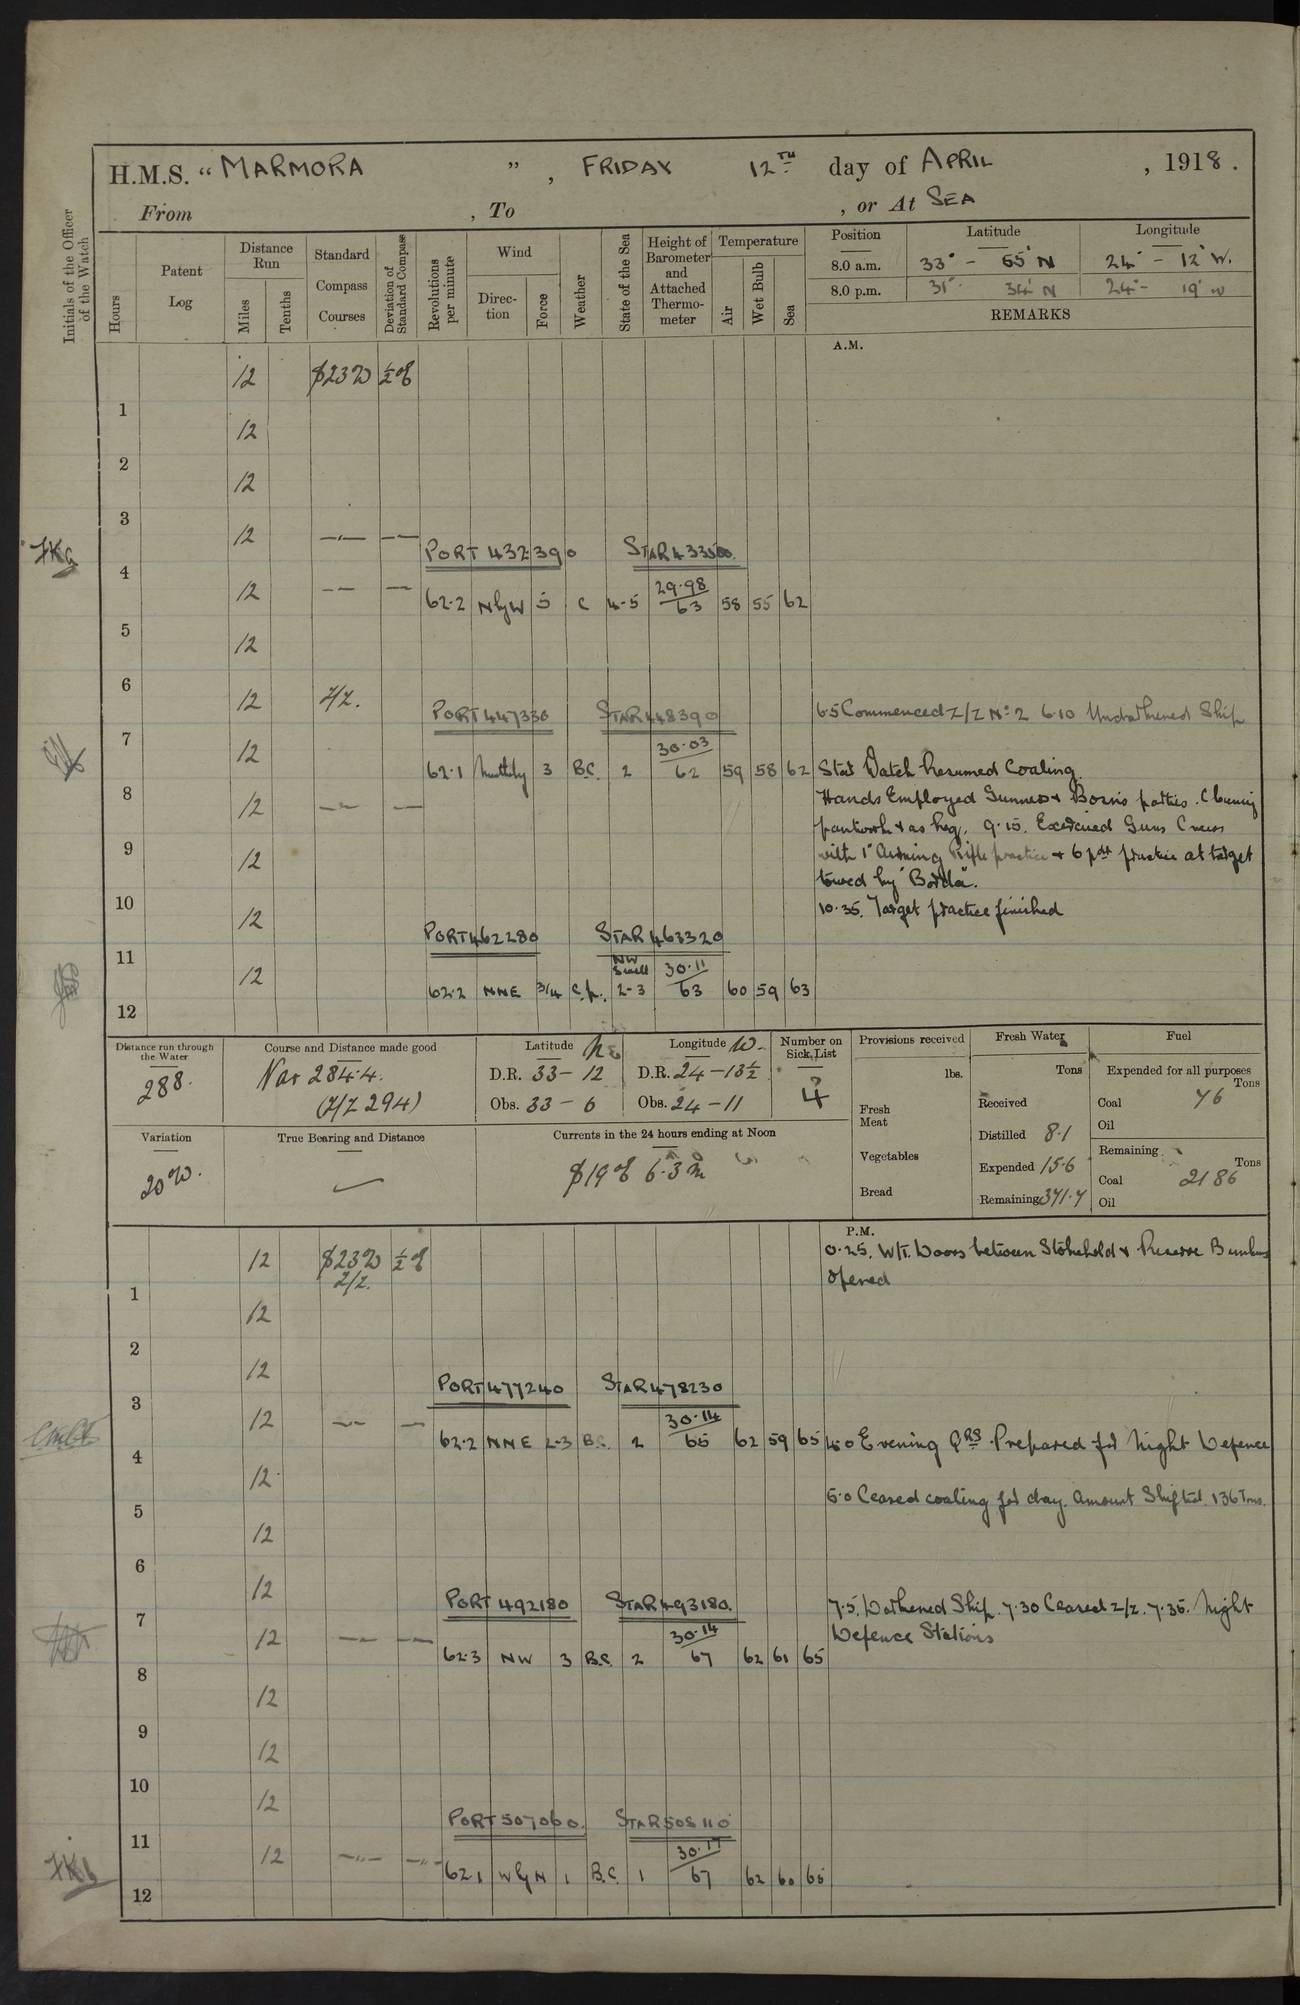 H.M.S. " MARMORA ", FRIDAY 12TH day of APRIL, 1918.
From , To , or At SEA
Initials of the Officer of the Watch
Hours
Patent Log
Distance Run
Miles
Tenths
Standard Compass Courses
Deviation of Standard Compass
Revolutions per minute
Wind
Direction
Force
Weather
State of the Sea
Height of Barometer and Attached Thermometer
Temperature
Air
Wet Bulb
Sea
Position Latitude Longitude
8.0 a.m. 33° - 55' N 24° - 12' W.
8.0 p.m. 31° 34' N 24° - 19' W
REMARKS
A.M.
12 S23W ½°E
1
12
2
12
3
12 —"— —"—
PORT 432390 STAR 433500
4
12 —"— —
62.2 NbyW 5 C 4-5 29.98/63 58 55 62
5
12
6
12 Z/Z.
PORT 447330 STAR 448390
6.5 Commenced Z/Z No 2 6.10 Undarkened Ship
7
12
62.1 Northerly 3 B.C. 2 30.03/62 59 58 62
Star Watch Resumed Coaling.
8
12 —"— —
Hands Employed Gunners & Bosns parties. Cleaning
paintwork & as req. 9.15. Exercised Guns Crews
9
12
with 1" Aiming Rifle practice & 6 pdr practice at target
towed by "Borda".
10
12
10.35. Target practice finished
PORT 462280 STAR 463320
11
12
62.2 NNE 3/4 C.p. NW Swell 2-3 30.11/63 60 59 63
12
Distance run through the Water
288.
Course and Distance made good
Nar 284.4.
(Z/Z 294)
Latitude N
D.R. 33 - 12
Obs. 33 - 6
Longitude W.
D.R. 24 - 13½
Obs. 24 - 11
Number on Sick List
4
Provisions received
lbs.
Fresh Meat
Vegetables
Bread
Fresh Water
Tons
Received
Distilled 8.1
Expended 15.6
Remaining 371.7
Fuel
Expended for all purposes
Tons
Coal 76
Oil
Remaining
Tons
Coal 2186
Oil
Variation
20°W.
True Bearing and Distance
Currents in the 24 hours ending at Noon
S19°E 6.3 m
P.M.
12 S23W ½°E
Z/Z.
0.25. W/T. Doors between Stokehold & Reserve Bunkers
opened
1
12
2
12
PORT 477240 STAR 478230
3
12 —"— —
62.2 NNE 2-3 B.C. 2 30.14/65 62 59 65
4.0 Evening Qrs. Prepared for Night Defence
4
12
5.0 Ceased coaling for day. Amount Shifted. 136 Tons.
5
12
6
12
PORT 492180 STAR 493180.
7.5. Darkened Ship. 7.30 Ceased Z/Z. 7.35. Night
Defence Stations
7
12 —"— —"—
62.3 NW 3 B.C. 2 30.14/67 62 61 65
8
12
9
12
10
12
PORT 507060. STAR 508110
11
12 —"— —"—
62.1 WbyN 1 B.C. 1 30.17/67 62 60 65
12